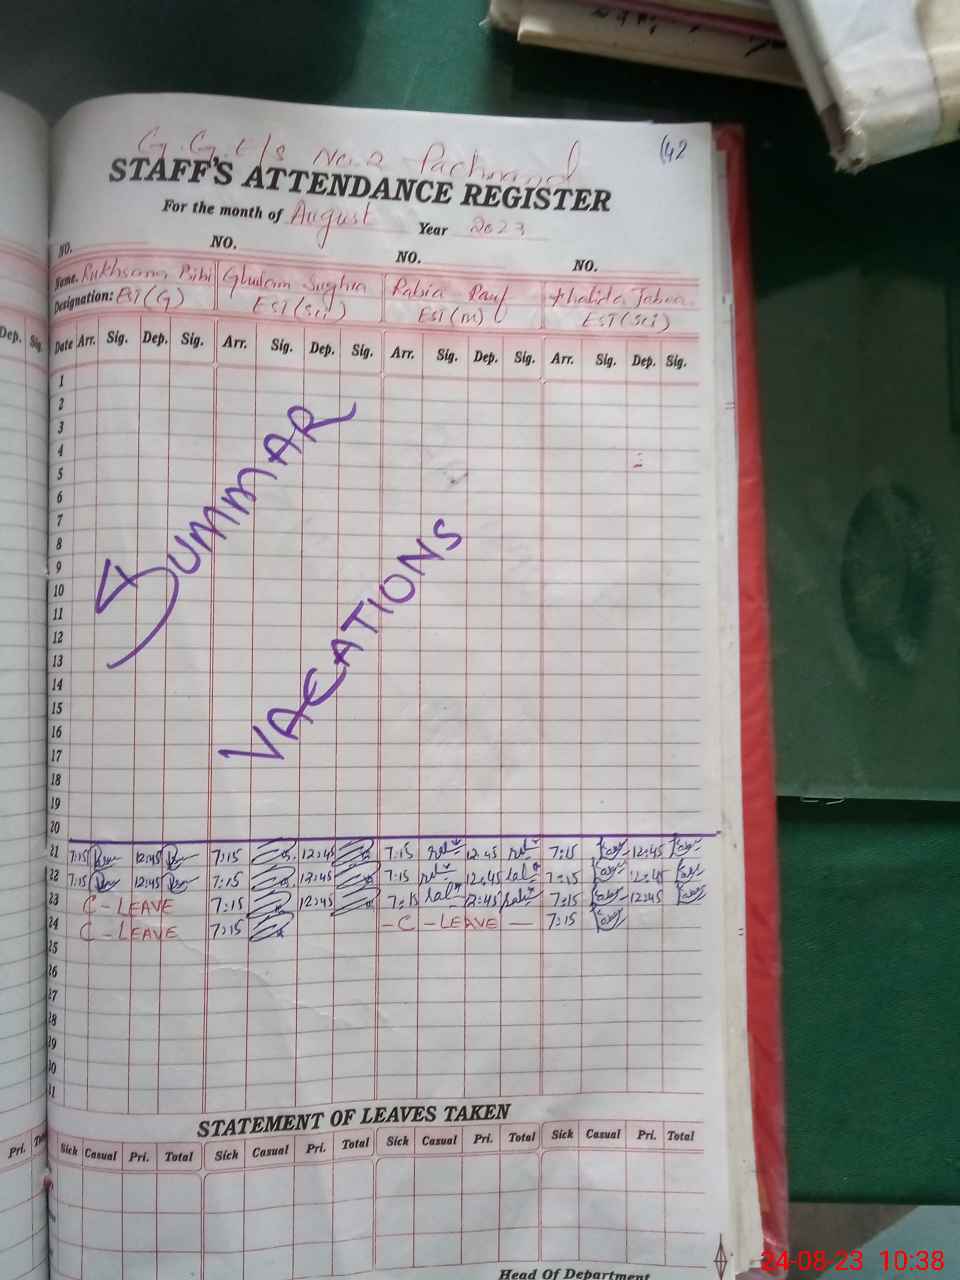 G.G.E/S No.2 Pachnand
(42
STAFF'S ATTENDANCE REGISTER
For the month of August Year 2023
NO. NO. NO. NO.
Name. Rukhsana Bibi Ghulam Sughra Rabia Rauf Khalida Jabeen
Designation: EST(G) EST(Sci) EST(M) EST(Sci)
Dep. Sig. Date Arr. Sig. Dep. Sig. Arr. Sig. Dep. Sig. Arr. Sig. Dep. Sig. Arr. Sig. Dep. Sig.
1
2
3
4
5
6
7
8
9
10
11
12
13
14
15
16
17
18
19
20
SUMMAR
VACATIONS
21 7:15 12:45 7:15 12:45 7:15 12:45 7:15 12:45
22 7:15 12:45 7:15 12:45 7:15 12:45 7:15 12:45
23 C-LEAVE 7:15 12:45 7:15 12:45 7:15 12:45
24 C-LEAVE 7:15 -C-LEAVE- 7:15
25
26
27
28
29
30
31
STATEMENT OF LEAVES TAKEN
Pri. Sick Casual Pri. Total Sick Casual Pri. Total Sick Casual Pri. Total Sick Casual Pri. Total
Head Of Department
24-08-23 10:38